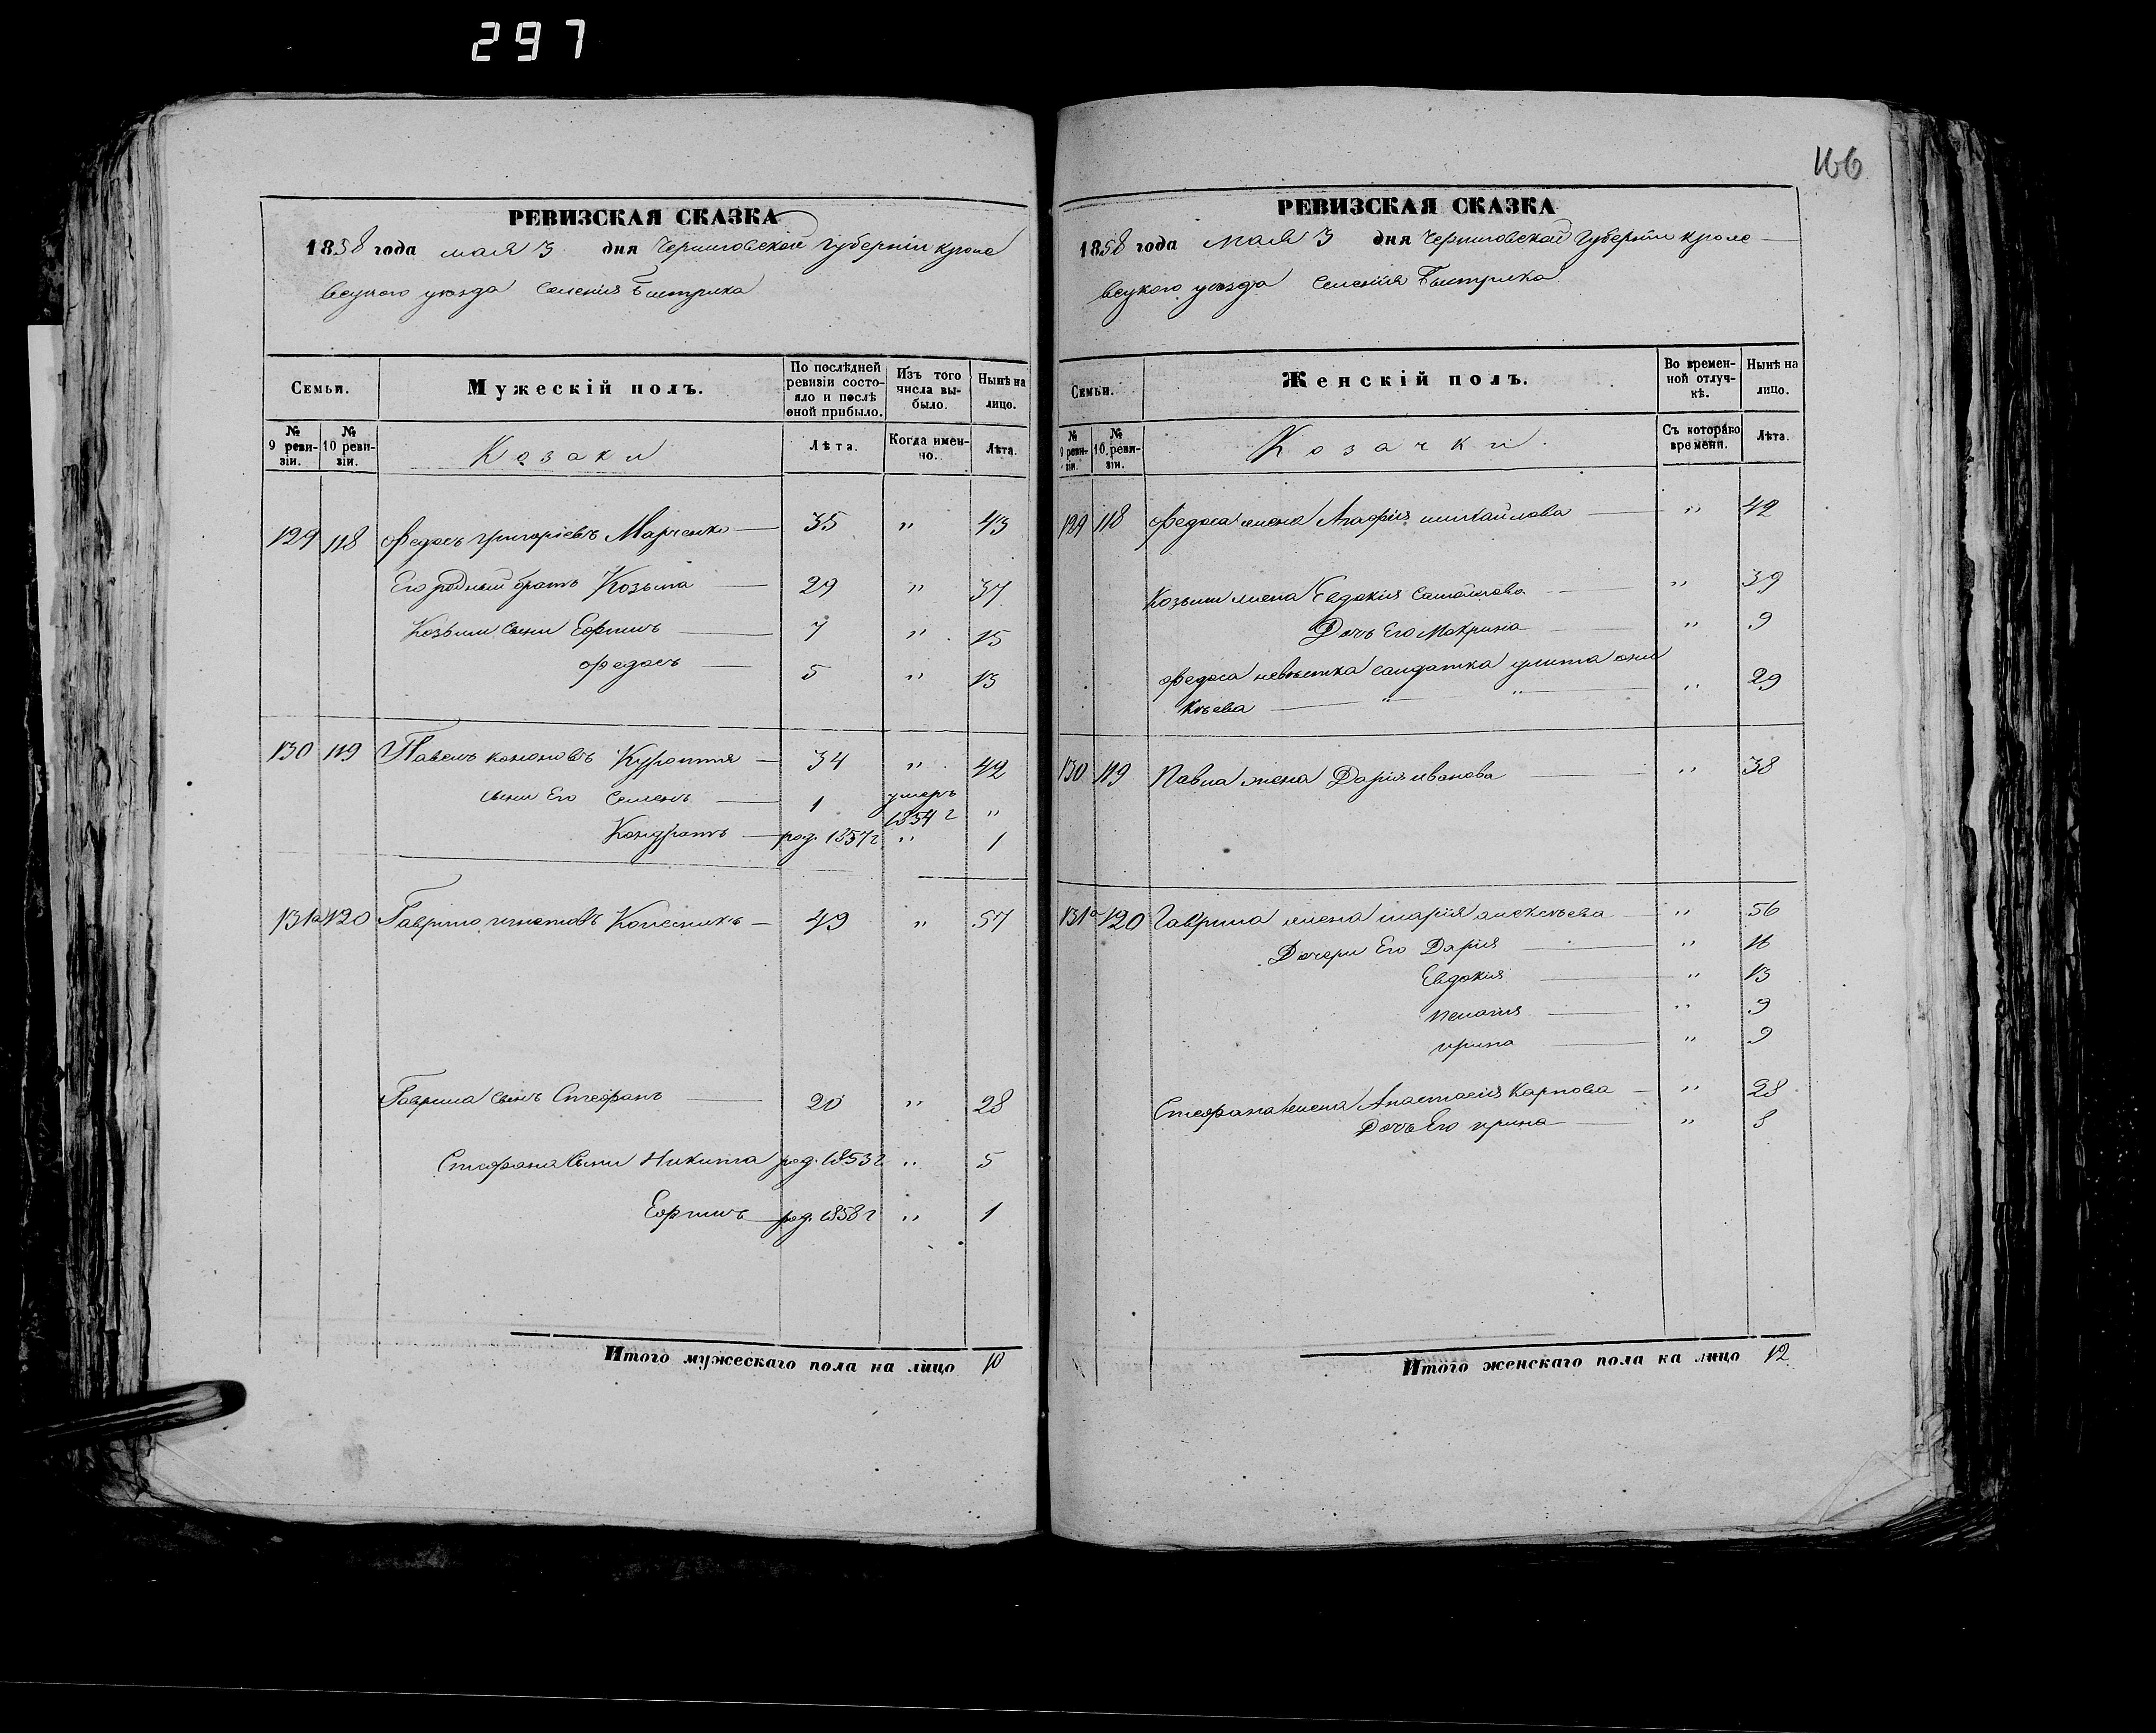 297
166
РЕВИЗСКАЯ СКАЗКА
1858 года мая 3 дня Черниговской Губерніи Кроле
вецкого уезда Селенія Быстрика
Семьи.
Мужескій полъ.
По послѣдней ревизіи состояло и послѣ оной прибыло.
Изъ того числа выбыло.
Нынѣ на лицо.
№ 9 ревизіи.
№ 10 ревизіи.
Козаки
Лѣта.
Когда именно.
Лѣта.
129 118 Федосъ Григоріевъ Марченко — 35 " 43
Его родный братъ Козьма — 29 " 37
Козьмы сыни Ефримъ — 7 " 15
Федосъ — 5 " 13
130 119 Павелъ Кононовъ Куропятя — 34 " 42
сыни Его Семенъ — 1 умеръ 1854 г "
Кондратъ — род. 1857 г " 1
131а 120 Гаврило Игнатовъ Колесникъ — 49 " 57
Гаврила сынъ Стефанъ — 20 " 28
Стефана сыни Никита род. 1853 г " 5
Ефримъ — род. 1858 г " 1
Итого мужескаго пола на лицо 10
РЕВИЗСКАЯ СКАЗКА
1858 года мая 3 дня Черниговской Губерніи Кроле —
вецкого уезда Селенія Быстрика
Семьи.
Женскій полъ.
Во временной отлучкѣ.
Нынѣ на лицо.
№ 9 ревизіи.
№ 10 ревизіи.
Козачки
Съ котораго времени.
Лѣта.
129 118 Федоса жена Агафія Михайлова — " 42
Козьми жена Евдокия Самойлова — " 39
Дочь Его Мокрина — " 9
Федоса невѣстка салдатка Улита Они
кѣева — " " — " 29
130 119 Павла жена Дарія Иванова — " 38
131а 120 Гаврила жена Марія Алексѣева — " 56
Дочери Его Дарія — " 16
Евдокия — " 13
Пелагія — " 9
Ирина — " 9
Стефана жена Анастасія Карпова — " 28
Дочь Его Ирина — " 3
Итого женскаго пола на лицо 12